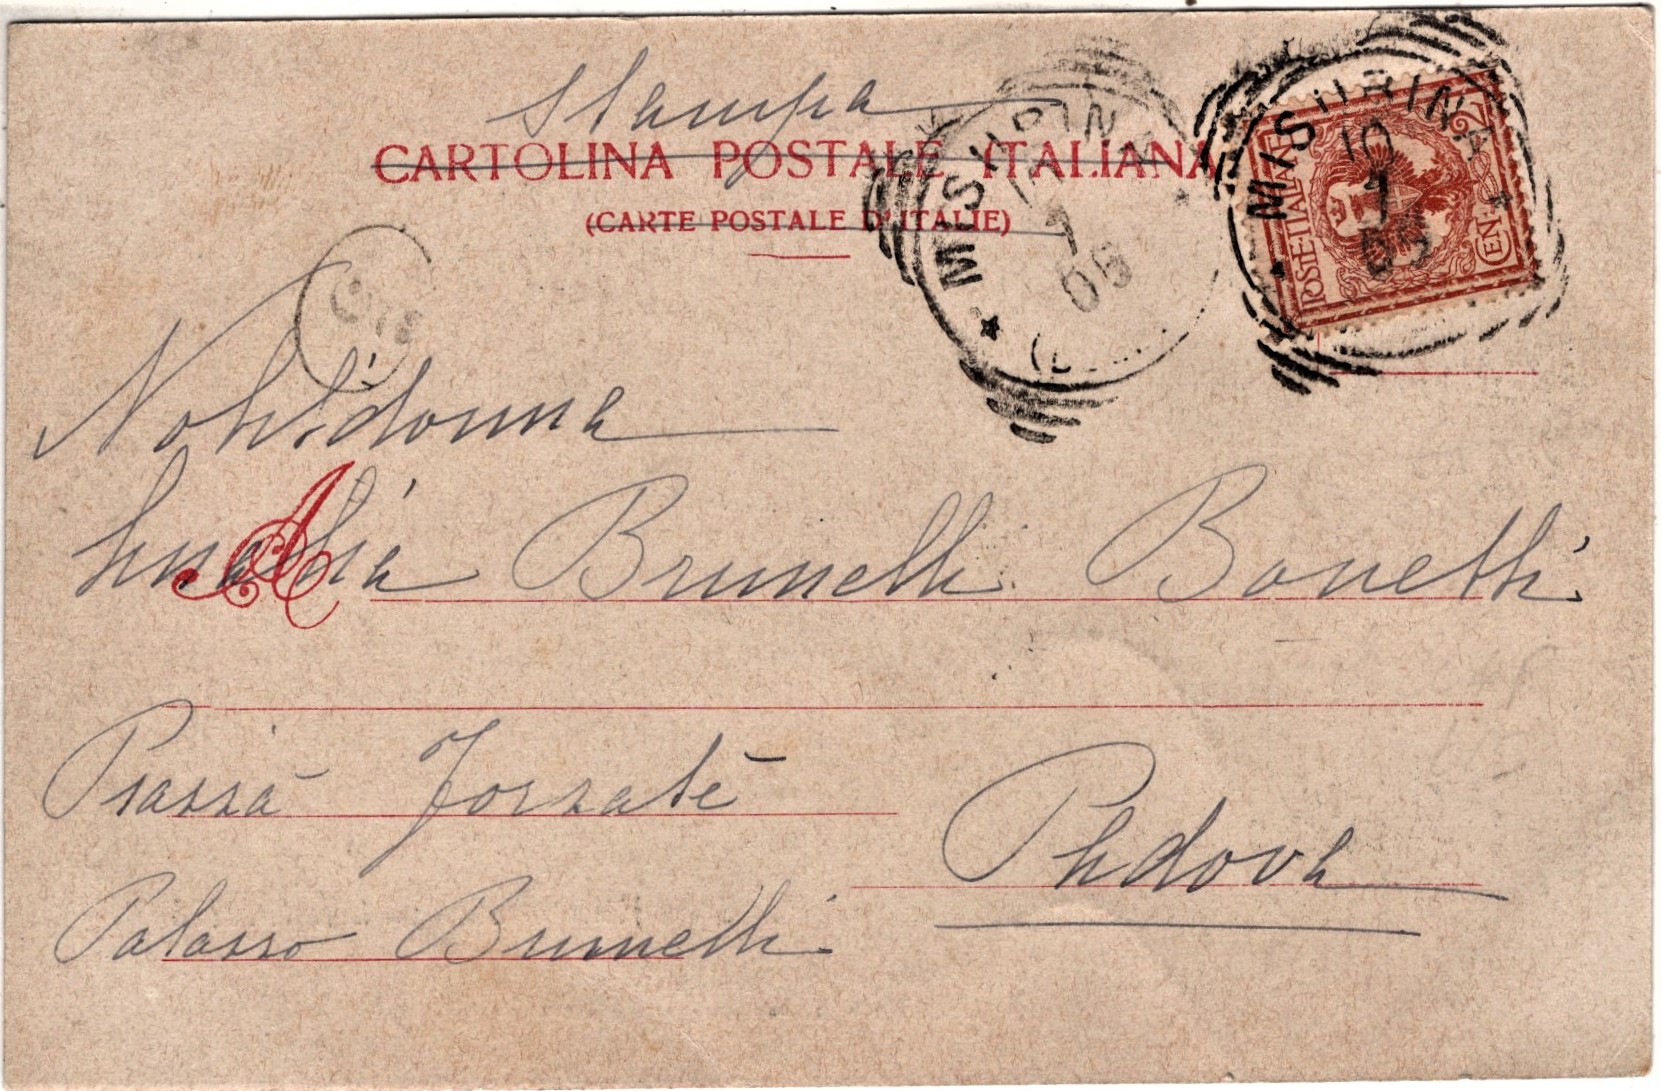 Stampa
CARTOLINA POSTALE ITALIANA
(CARTE POSTALE D'ITALIE)
MISURINA
10
7
05
MISURINA
10
7
05
POSTE ITALIANE
CENT. 2
Nobildonna
A
Brunelli Bonetti
Piazza Forzatè
Padova
Palazzo Brunelli